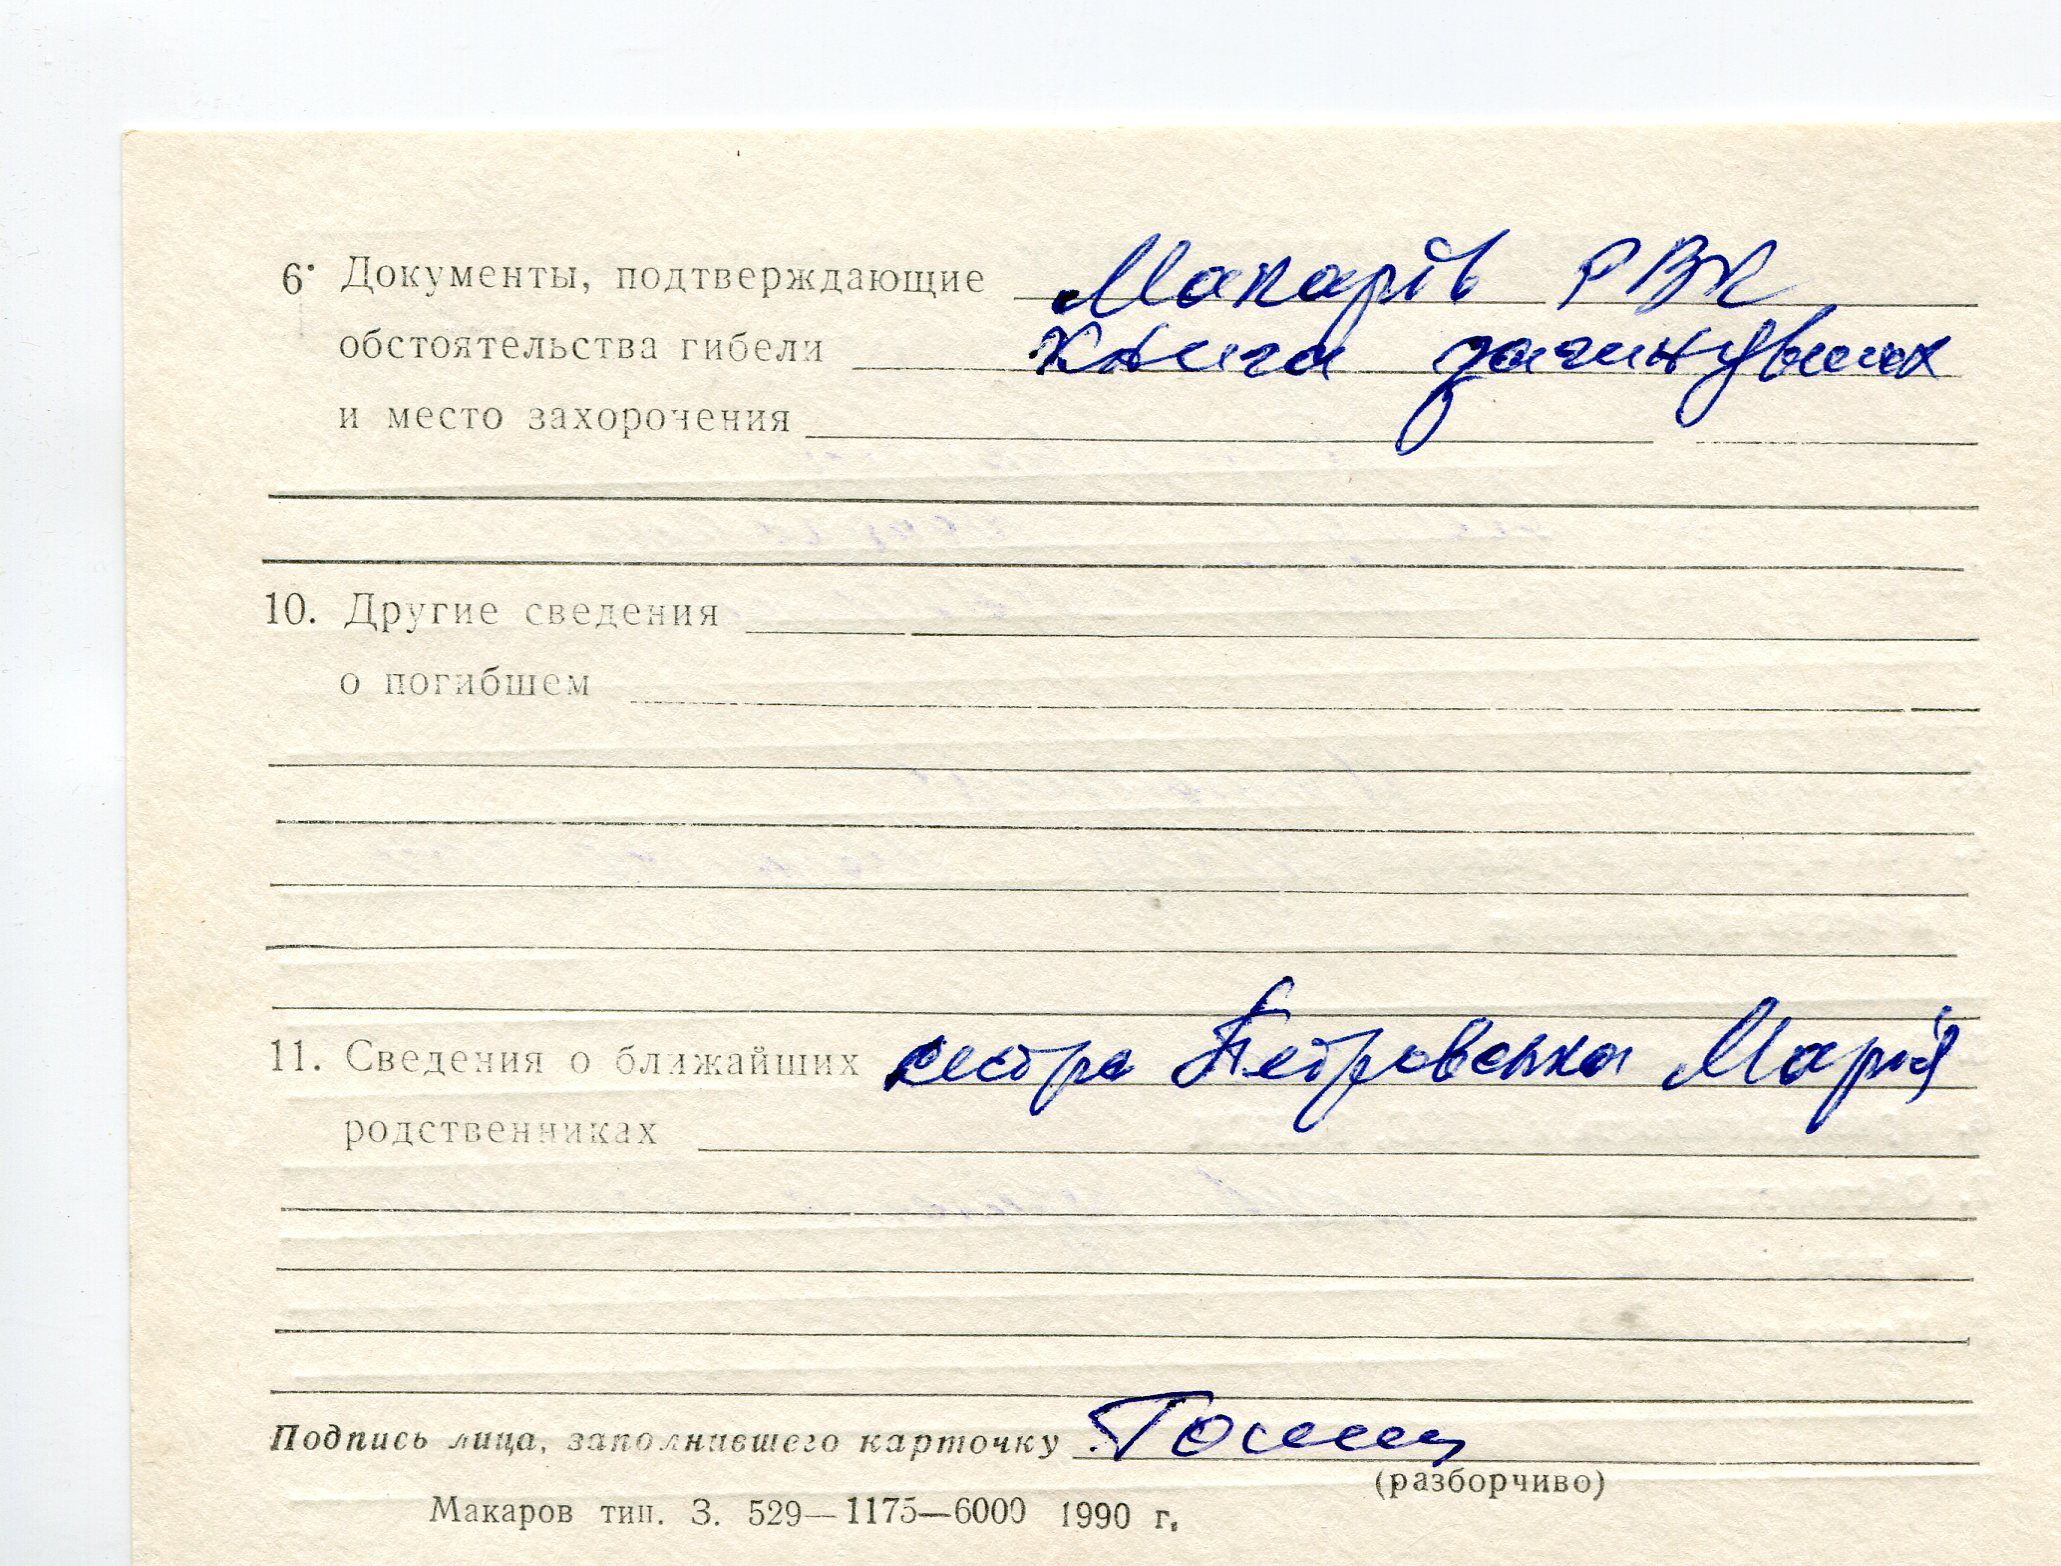 6. Документы, подтверждающие Макарів РВК
обстоятельства гибели Книга загинувших
и место захоронения
10. Другие сведения
о погибшем
11. Сведения о ближайших сестра Петровська Марія
родственниках
Подпись лица, заполнившего карточку
(разборчиво)
Макаров тип. З. 529—1175—6000 1990 г.